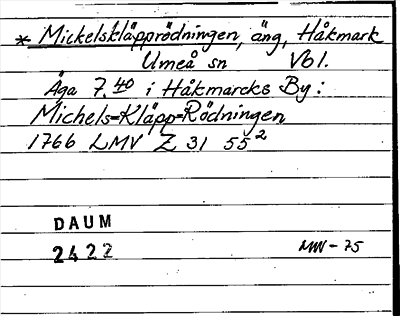 * Mickelskläpprödningen, äng, Håkmark
Umeå sn Vbl.
Äga 7.40 i Håkmarcks By:
Michels=Kläpp=Rödningen
1766 LMV Z 31 55²
DAUM
2422
MW-75